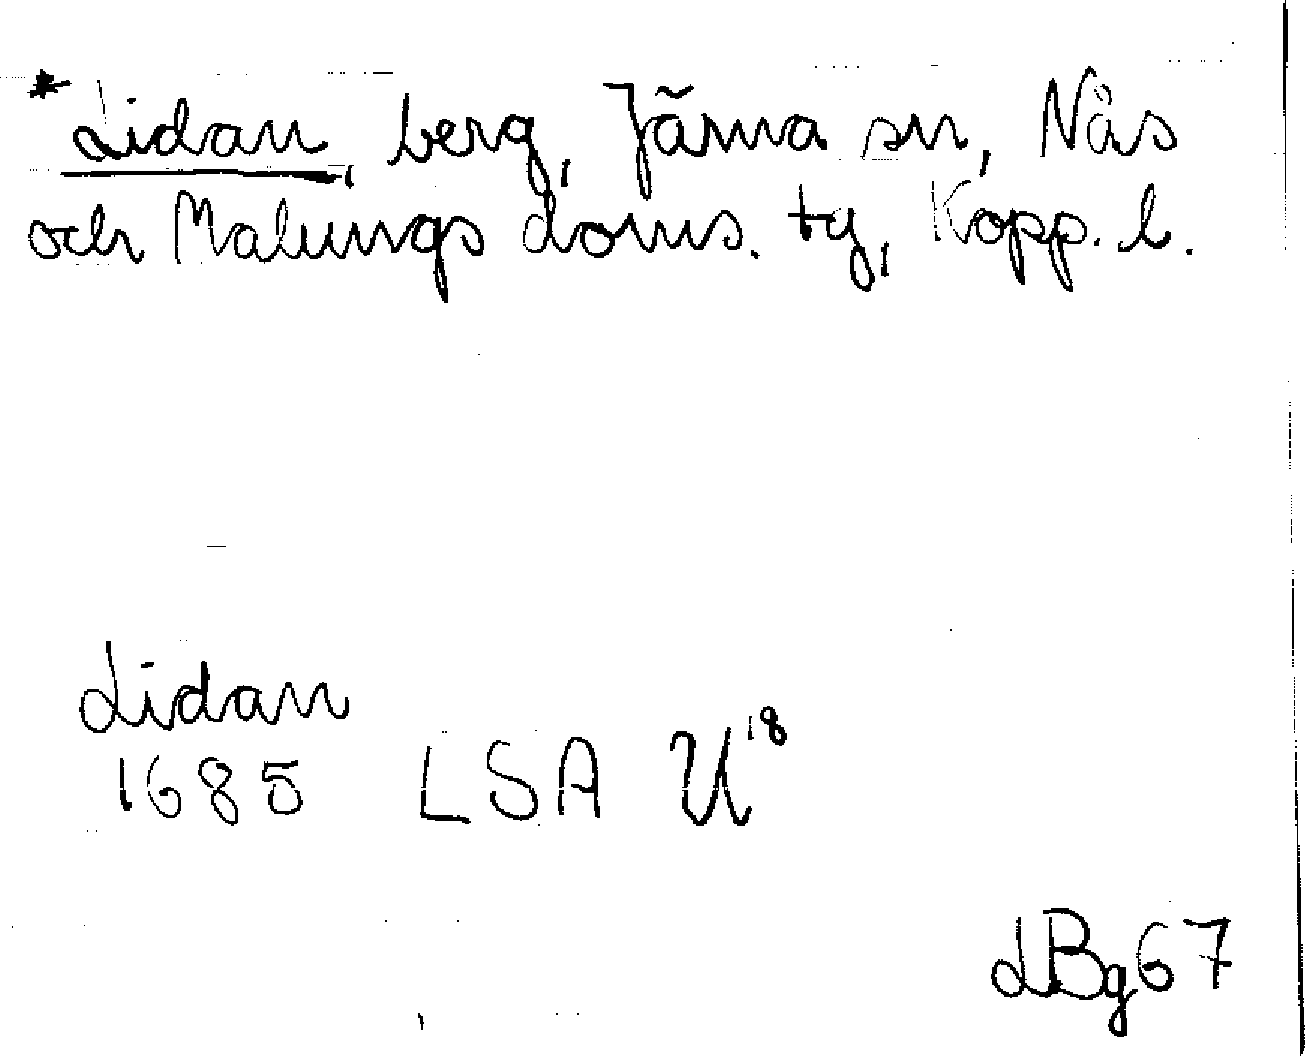 *Lidan, berg, Järna sn, Nås
och Malungs doms. tg, Kopp. l.
Lidan
1685 LSA U¹⁸
LBg67